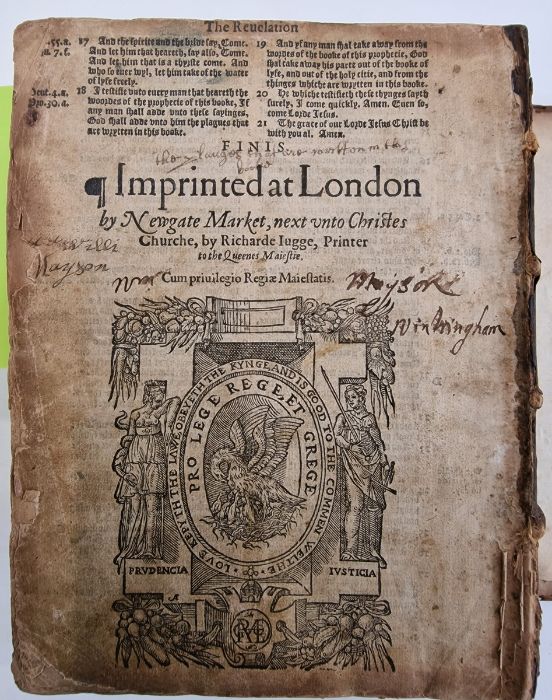 The Reuelation
17 And the spirite and the bride say, Come. And let him that heareth, say also, Come.
And let him that is a thyrste come. And
who so euer wyl, let him take of the water
of lyfe freely.
Deut.4.a. 18 I testifie vnto euery man that heareth the
Pro.30.a. woordes of the prophecie of this booke, If
any man shall adde vnto these sayinges,
God shall adde vnto him the plagues that
are wrytten in this booke.
19 And yf any man shal take away from the
wordes of the booke of this prophecie, God
shal take away his parte out of the booke of
lyfe, and out of the holy citie, and from the
thinges whiche are wrytten in this booke.
20 He whiche testifieth these thynges sayth
surely, I come quickly. Amen. Euen so,
come Lorde Iesus.
21 The grace of our Lorde Iesus Christ be
with you al. Amen.
FINIS.
¶ Imprinted at London
by Newgate Market, next vnto Christes
Churche, by Richarde Iugge, Printer
to the Queenes Maiestie.
Cum priuilegio Regiæ Maiestatis.
Mayson
LOVE KEPYTH THE LAWE, OBEYETH THE KYNGE, AND IS GOOD TO THE COMMEN WELTHE
PRO LEGE REGE ET GREGE
PRVDENCIA
IVSTICIA